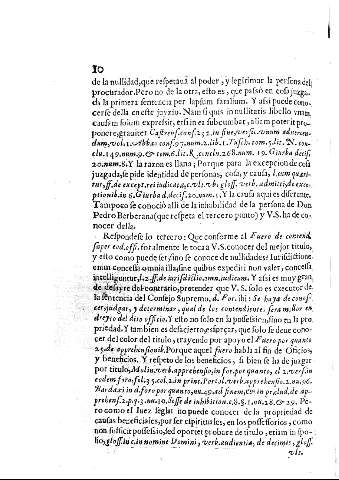 10
de la nullidad, que respetaua al poder, y legitimar la persona del
procurador. Pero no de la otra, esto es, que passó en cosa juzga-
da la primera sentencia por lapsum fatalium. Y assi puede cono-
cerse della en este joyzio. Nam si quis in nullitatis libello vnam
causam solum expressit, etsi in ea subcumbat, aliam poterit pro-
ponere, grauiter
dum, vol. 1. Abbas conf. 97. num. 2. lib. 1. Tusch. tom. 5. lit. N. con-
clu. 149. num. 9. & tom. 6. lit. R. conclu. 268. num. 19. Giurba decis.
20. num. 8. Y la razon es llana; Porque para la excepcion de cosa
juzgada, se pide identidad de personas, cosas, y causas, l. cum quæri-
tur, ff. de except. rei iudicatæ, c. vlt. vb. gloss. verb. admitti, de exce-
ptionib. in 6. Giurba d. decis. 20. num. 1. Y la causa aqui es diferente.
Tampoco se conoció alli de la inhabilidad de la persona de Don
Pedro Berberana (que respeta el tercero punto) y V. S. ha de co-
nocer della.
Respondese lo tercero: Que conforme al Fuero de conced.
super eod. off. foralmente le toca a V. S. conocer del mejor titulo,
y esto como puede ser, sino se conoce de nullidades? Iurisdictione
enim concessa omnia illa sine quibus expediri non valet, concessa
intelliguntur, l. 2. ff. de iurisdictio. omn. iudicum. Y assi es muy gran-
de desayre del contrario, pretender que V. S. solo es executor de
la sentencia del Consejo Supremo, d. For. ibi: Se haya de conos-
cer, judgar, y determinar, qual de los contendientes terna mejor
dreyto del dito officio. Y esto no solo en la possession, sino en la pro-
piedad. Y tambien es desacierto, esforçar, que solo se deue cono-
cer del color del titulo, trayendo por apoyo el Fuero por quanto
25. de apprehensionib. Porque aquel fuero habla al fin de Oficios
y beneficios. Y respeto de los beneficios, si bien se ha de juzgar
por titulo, Molin. verb. apprehensio, in for. por quanto, el 2. vers. in
eodem foro, fol. 35. col. 2. in princ. Portol. verb. apprehensio. 2. nu. 96.
Bardaxi in d. foro por quanto, nu. 49. ad finem, & in prælud. de ap-
prehens. 2. p. q. 3. nu. 30. Sesse de inhibition. c. 8. §. 1. nu. 28. & 29. Pe-
ro como el Iuez legal no puede conocer de la propriedad de
causas beneficiales, por ser espirituales, en los possessorios, como
non sufficit possessio, sed oportet probare de titulo, etiam in spo-
lio, gloss. in c. in nomine Domini, verb. audientia, de decimis, gloss.
vlt.